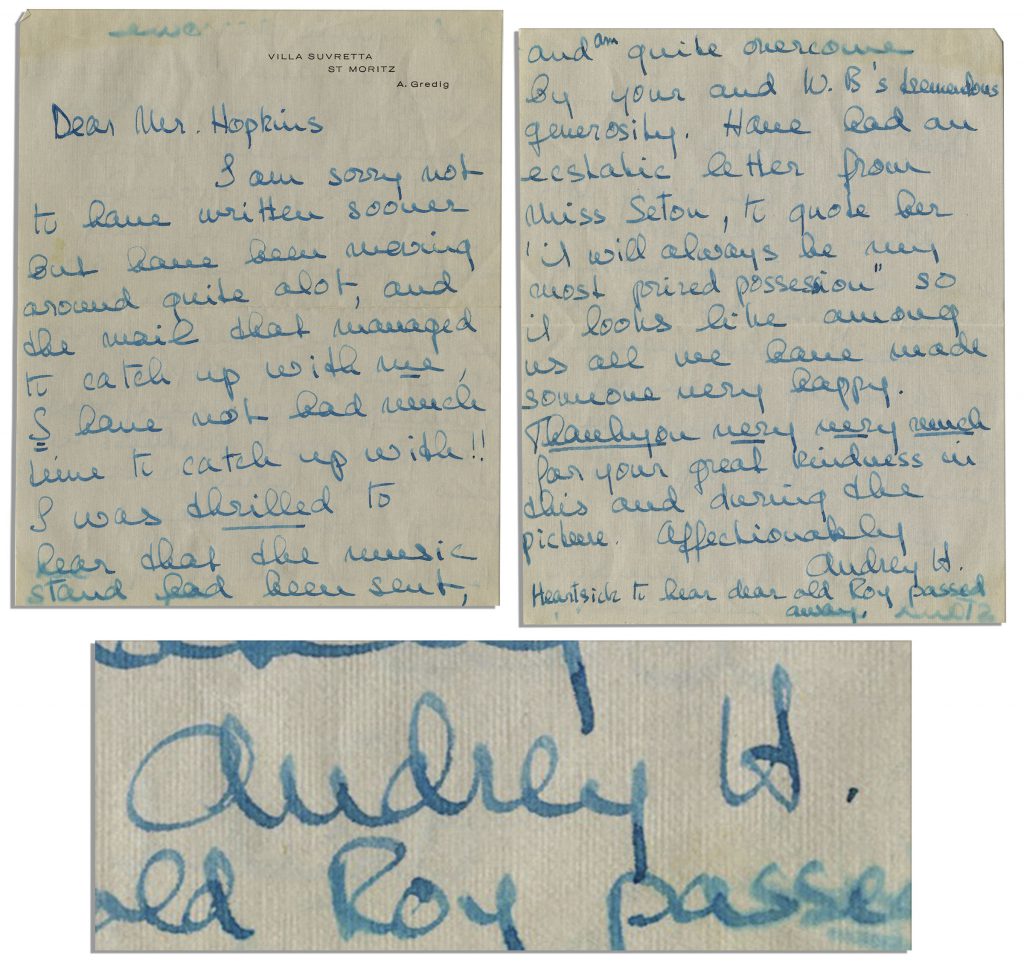 VILLA SUVRETTA
ST MORITZ
A. Gredig
Dear Mr. Hopkins
I am sorry not
to have written sooner
but have been moving
around quite alot, and
the mail that managed
to catch up with me,
I have not had much
time to catch up with!!
I was thrilled to
hear that the music
stand had been sent,
and am quite overcome
by your and W. B's tremendous
generosity. Have had an
ecstatic letter from
Miss Seton, to quote her
'it will always be my
most prized possession" so
it looks like among
us all we have made
someone very happy.
Thankyou very very much
for your great kindness in
this and during the
picture. Affectionately
Audrey H.
Heartsick to hear dear old Roy passed
away.
Audrey H.
old Roy passed